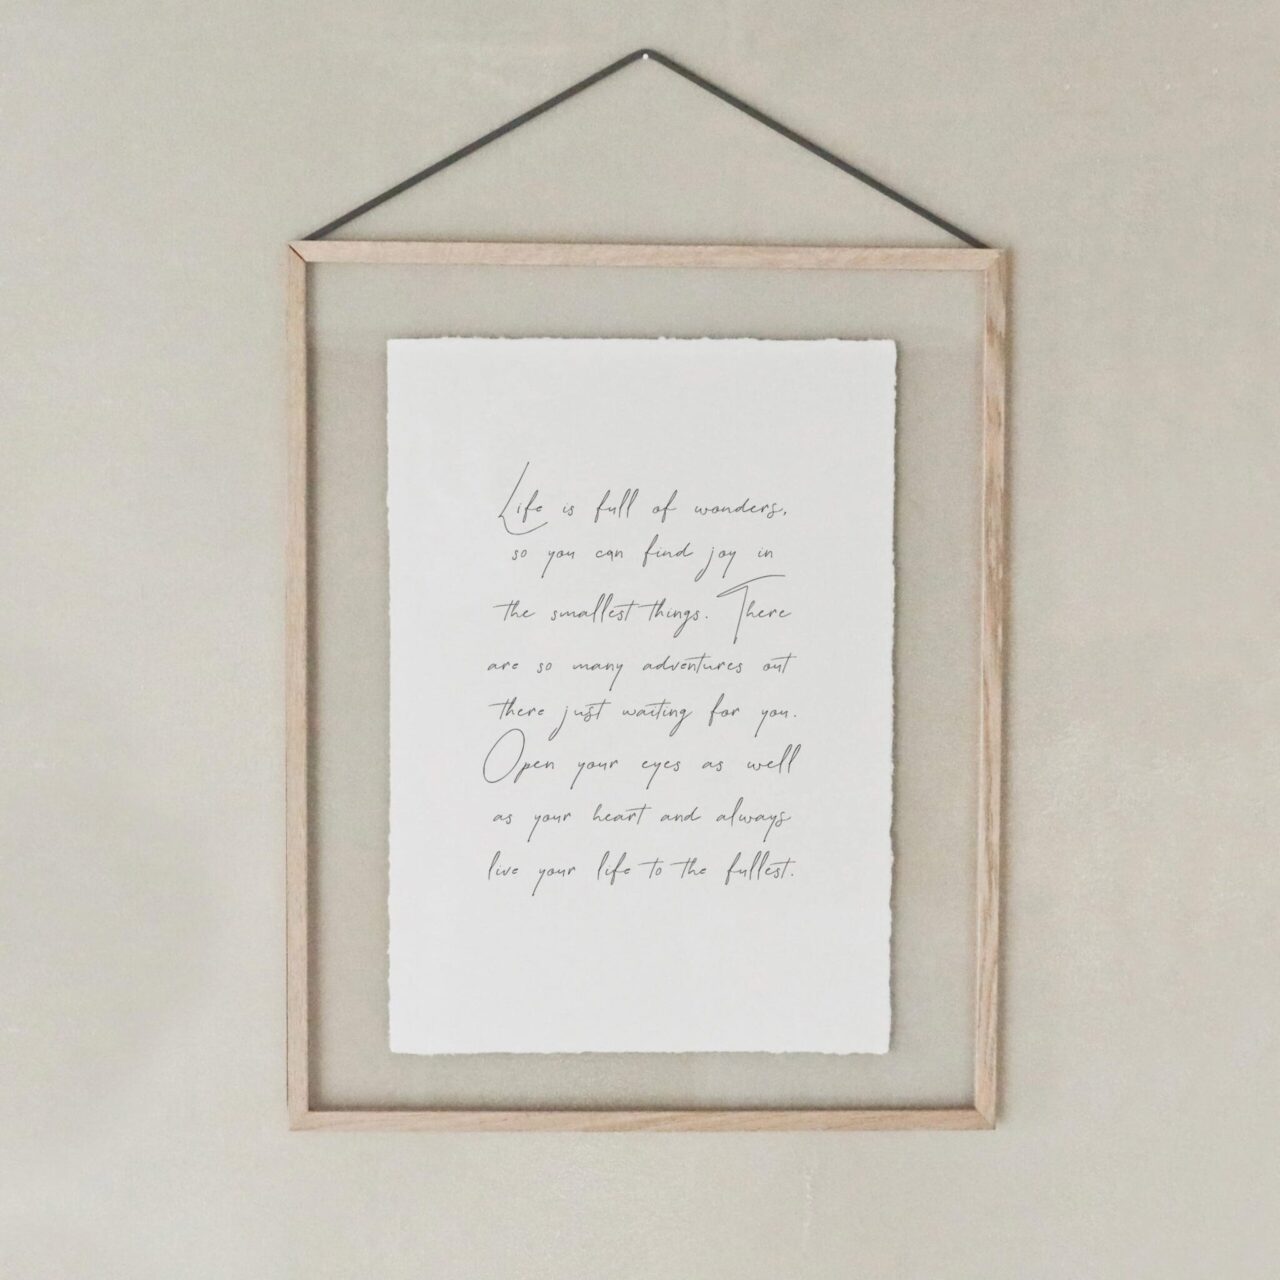 Life is full of wonders,
so you can find joy in
the smallest things. There
are so many adventures out
there just waiting for you.
Open your eyes as well
as your heart and always
live your life to the fullest.